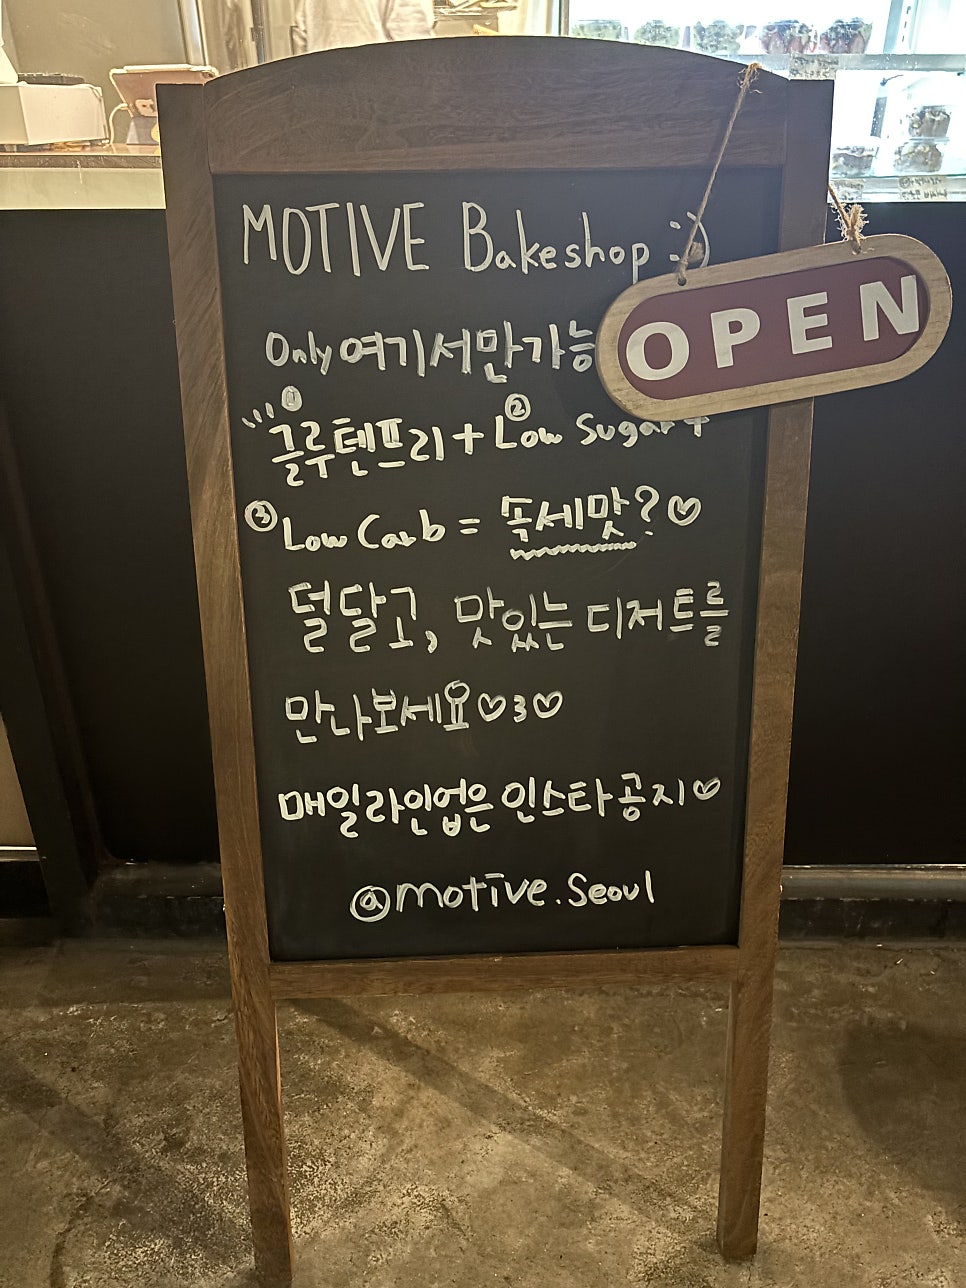 MOTIVE Bakeshop :)
OPEN
Only 여기서만가능
① 글루텐프리 + ② Low Sugar +
③ Low Carb = 똑세맛? ♡
덜달고, 맛있는 디저트를
만나보세요♡3♡
매일라인업은 인스타공지♡
@motive.Seoul